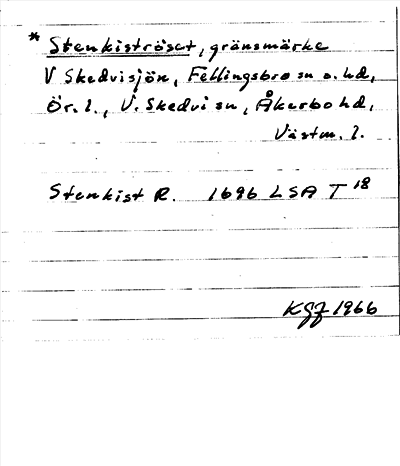 * Stenkiströset, gränsmärke
V Skedvisjön, Fellingsbro sn o. hd,
Ör. l., V. Skedvi sn, Åkerbo hd,
Västm. l.
Stenkist R. 1696 LSA T 18
KGJ 1966